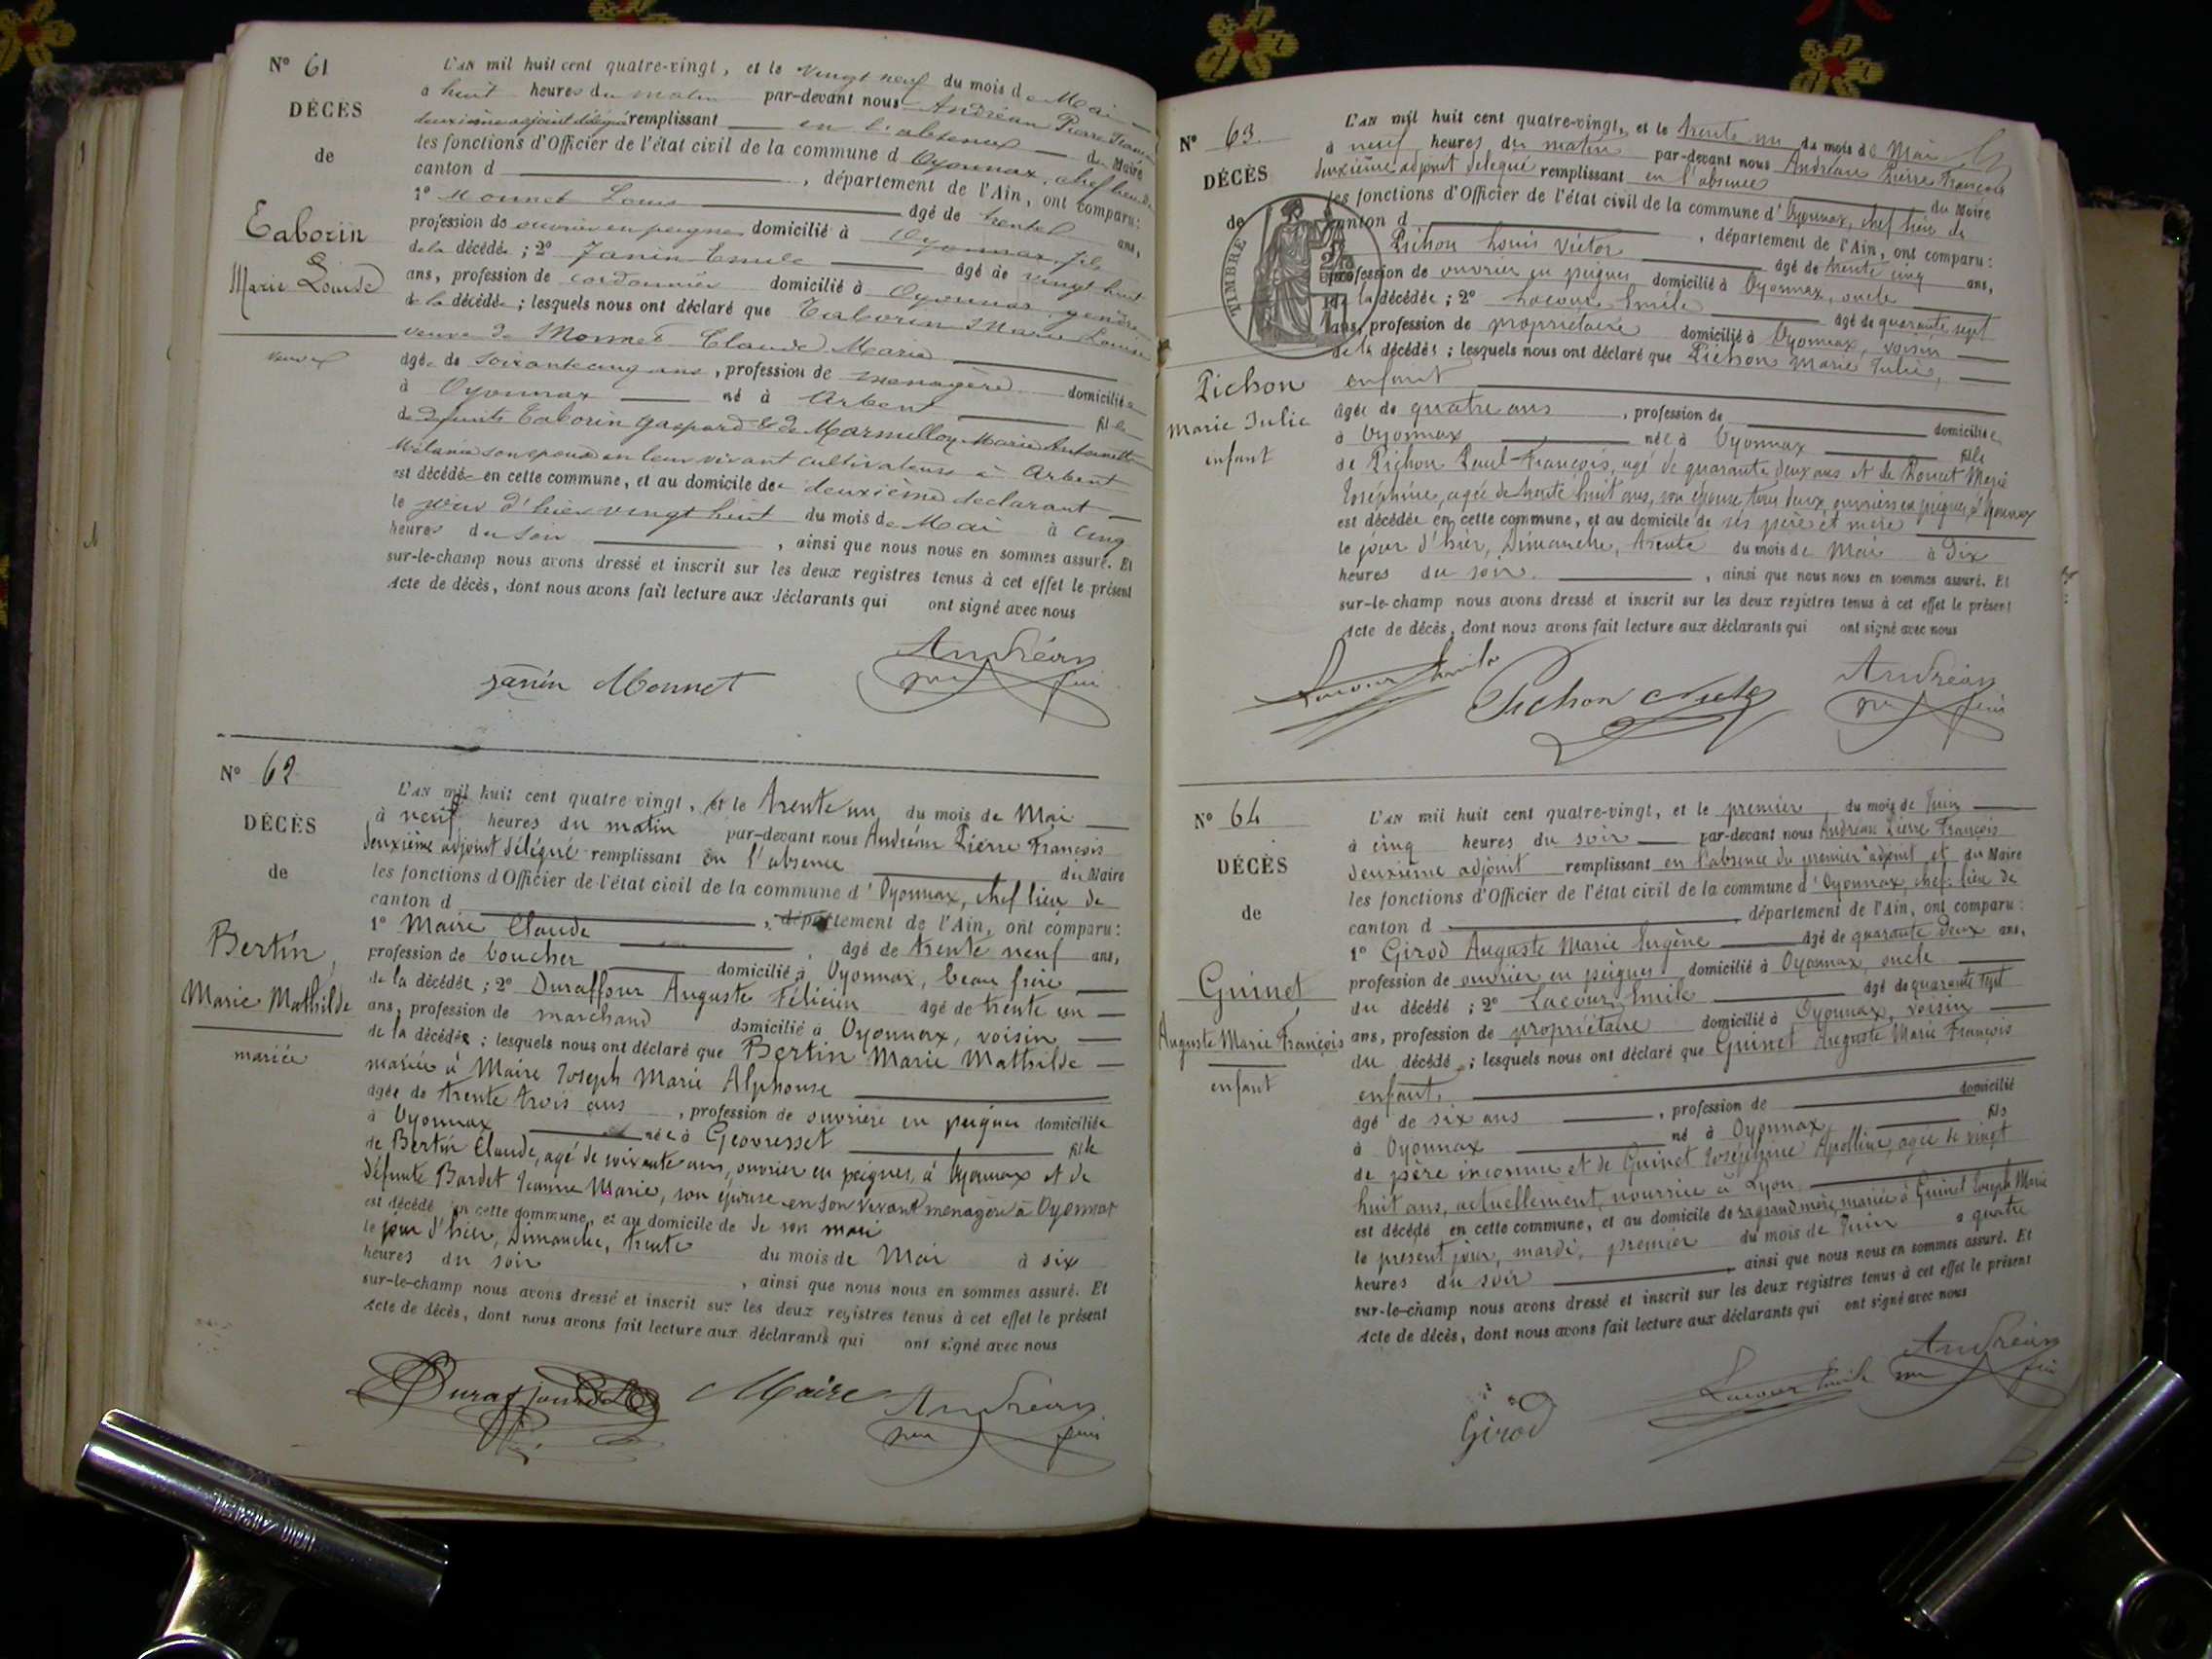 N° 61
DÉCÈS
de
Taborin
Marie Louise
veuve
L'AN mil huit cent quatre-vingt, et le vingt neuf du mois de Mai
à huit heures du matin par-devant nous Andréan Pierre François
deuxième adjoint délégué remplissant en l'absence du Maire
les fonctions d'Officier de l'état civil de la commune d Oyonnax, chef lieu de
canton d , département de l'Ain, ont comparu:
1° Monnet Louis âgé de trente ans,
profession de ouvrier en peignes domicilié à Oyonnax, fils
de la décédée ; 2° Janin Emile âgé de vingt huit
ans, profession de cordonnier domicilié à Oyonnax, gendre
de la décédée ; lesquels nous ont déclaré que Taborin Marie Louise
veuve de Monnet Claude Marie
âgée de soixante cinq ans , profession de ménagère domiciliée
à Oyonnax né à Arbent fille
de défunts Taborin Gaspard & de Marmillon Marie Antoinette
Mélanie son épouse en leur vivant cultivateurs à Arbent
est décédée en cette commune, et au domicile de deuxième déclarant
le jour d'hier vingt huit du mois de Mai à cinq
heures du soir , ainsi que nous nous en sommes assuré. Et
sur-le-champ nous avons dressé et inscrit sur les deux registres tenus à cet effet le présent
Acte de décès, dont nous avons fait lecture aux déclarants qui ont signé avec nous
Janin Monnet Andréan
N° 62
DÉCÈS
de
Bertin,
Marie Mathilde
mariée
L'AN mil huit cent quatre vingt, et le trente un du mois de Mai
à neuf heures du matin par-devant nous Andréan Pierre François
deuxième adjoint délégué remplissant en l'absence du Maire
les fonctions d'Officier de l'état civil de la commune d'Oyonnax, chef lieu de
canton d , département de l'Ain, ont comparu:
1° Maire Claude âgé de trente neuf ans,
profession de boucher domicilié à Oyonnax, beau frère
de la décédée ; 2° Duraffour Auguste Félicien âgé de trente un
ans, profession de marchand domicilié à Oyonnax, voisin
de la décédée ; lesquels nous ont déclaré que Bertin Marie Mathilde
mariée à Maire Joseph Marie Alphonse
âgée de trente trois ans , profession de ouvrière en peignes domiciliée
à Oyonnax née à Geovresset fille
de Bertin Claude, agé de soixante ans, ouvrier en peignes, à Oyonnax et de
défunte Bardet Jeanne Marie, son épouse en son vivant ménagère à Oyonnax
est décédé en cette commune, et au domicile de de son mari
le jour d'hier, Dimanche, trente du mois de Mai à six
heures du soir , ainsi que nous nous en sommes assuré. Et
sur-le-champ nous avons dressé et inscrit sur les deux registres tenus à cet effet le présent
Acte de décès, dont nous avons fait lecture aux déclarants qui ont signé avec nous
Duraffour Maire Andréan
N° 63.
DÉCÈS
de
TIMBRE
Pichon
Marie Julie
enfant
L'AN mil huit cent quatre-vingt, et le trente un du mois de Mai
à neuf heures du matin par-devant nous Andréan Pierre François
deuxième adjoint délégué remplissant en l'absence du Maire
les fonctions d'Officier de l'état civil de la commune d'Oyonnax, chef lieu de
canton d , département de l'Ain, ont comparu:
Pichon Louis Victor âgé de trente cinq ans,
profession de ouvrier en peignes domicilié à Oyonnax, oncle
de la décédée ; 2° Lacour Emile âgé de quarante sept
ans, profession de propriétaire domicilié à Oyonnax, voisin
de la décédée ; lesquels nous ont déclaré que Pichon Marie Julie,
enfant
âgée de quatre ans , profession de domiciliée
à Oyonnax née à Oyonnax fille
de Pichon Paul François, agé de quarante deux ans et de Poncet Marie
Joséphine, agée de trente huit ans, son épouse, tous deux ouvriers en peignes, à Oyonnax
est décédée en cette commune, et au domicile de ses père et mère
le jour d'hier, Dimanche, trente du mois de Mai à dix
heures du soir. , ainsi que nous nous en sommes assuré. Et
sur-le-champ nous avons dressé et inscrit sur les deux registres tenus à cet effet le présent
Acte de décès, dont nous avons fait lecture aux déclarants qui ont signé avec nous
Lacour Emile Pichon Andréan
N° 64
DÉCÈS
de
Guinet
Auguste Marie François
enfant
L'AN mil huit cent quatre-vingt, et le premier du mois de Juin
à cinq heures du soir par-devant nous Andréan Pierre François
deuxième adjoint remplissant en l'absence du premier adjoint et du Maire
les fonctions d'Officier de l'état civil de la commune d'Oyonnax, chef lieu de
canton d , département de l'Ain, ont comparu:
1° Girod Auguste Marie Eugène âgé de quarante deux ans,
profession de ouvrier en peignes domicilié à Oyonnax, oncle
du décédé ; 2° Lacour Emile âgé de quarante sept
ans, profession de propriétaire domicilié à Oyonnax, voisin
du décédé ; lesquels nous ont déclaré que Guinet Auguste Marie François
enfant,
âgé de six ans , profession de domicilié
à Oyonnax né à Oyonnax fils
de père inconnu et de Guinet Joséphine Apolline, agée de vingt
huit ans, actuellement, nourrice à Lyon
est décédé en cette commune, et au domicile de sa grand mère, mariée à Guinet Joseph Marie
le présent jour, mardi, premier du mois de Juin à quatre
heures du soir , ainsi que nous nous en sommes assuré. Et
sur-le-champ nous avons dressé et inscrit sur les deux registres tenus à cet effet le présent
Acte de décès, dont nous avons fait lecture aux déclarants qui ont signé avec nous
Girod Lacour Emile Andréan